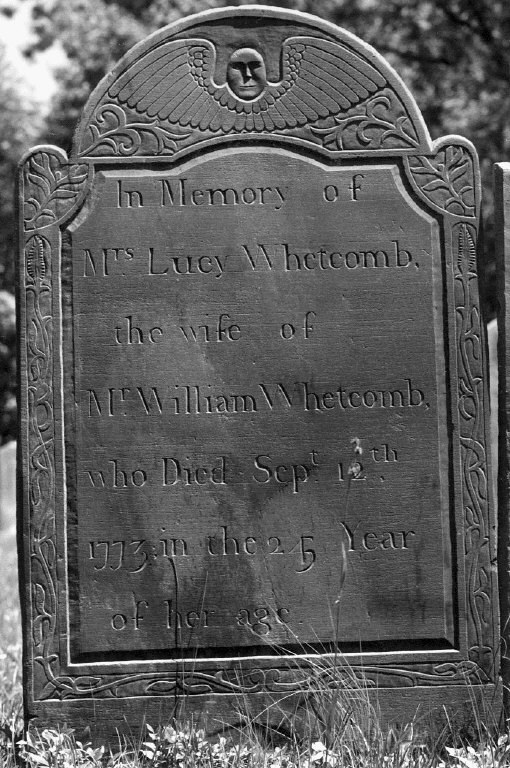 In Memory of
Mrs Lucy Whetcomb,
the wife of
Mr William Whetcomb,
who Died Sept 12th,
1773, in the 25 Year
of her age.